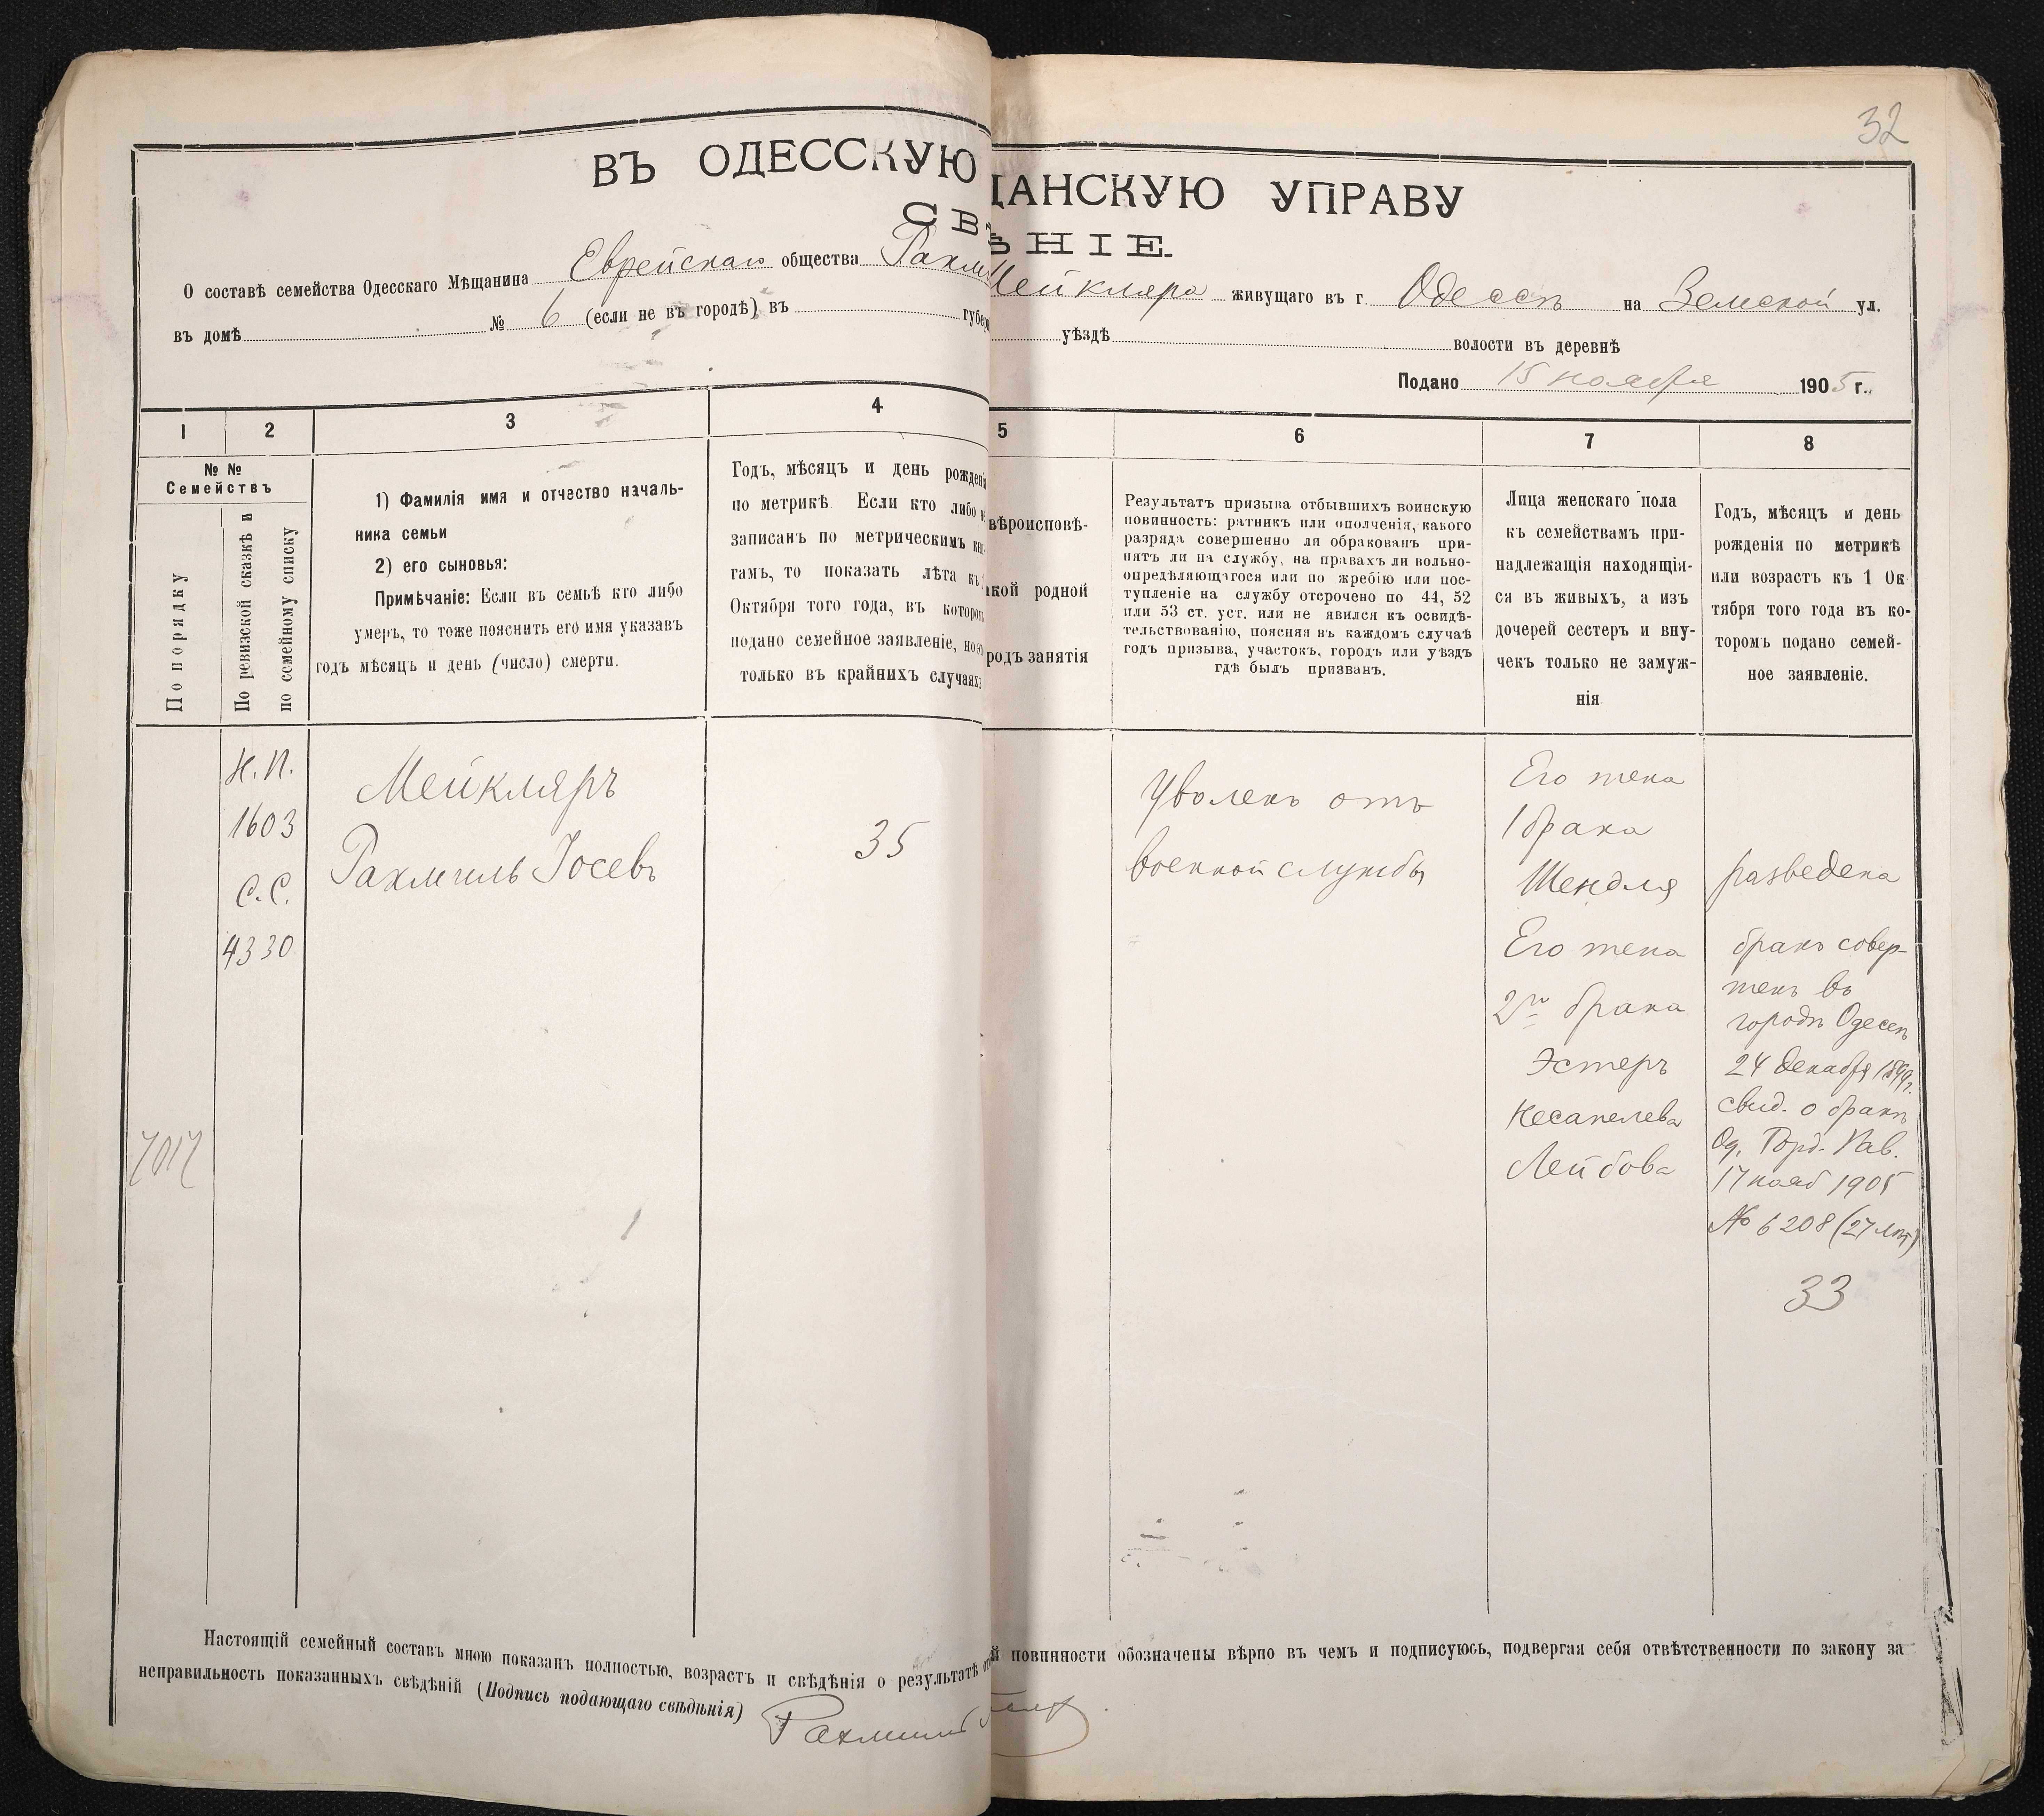 32
ВЪ ОДЕССКУЮ ЩАНСКУЮ УПРАВУ
СВѢНІЕ.
О составѣ семейства Одесскаго Мѣщанина Еврейскаго общества Рахм Мейкляра живущаго въ г Одессѣ на Земской ул.
въ домѣ № 6 (если не въ городѣ) въ губер уѣздѣ волости въ деревнѣ
Подано 15 ноября 1905 г.
1 2 3 4 5 6 7 8
№ №
Семействъ
По порядку
По ревизской сказкѣ и
по семейному списку
1) Фамилія имя и отчество началь-
ника семьи
2) его сыновья:
Примѣчаніе: Если въ семьѣ кто либо
умеръ, то тоже пояснить его имя указавъ
годъ мѣсяцъ и день (число) смерти.
Годъ, мѣсяцъ и день рожденія
по метрикѣ Если кто либо не
записанъ по метрическимъ кни-
гамъ, то показать лѣта къ 1
Октября того года, въ которомъ
подано семейное заявленіе, но
только въ крайнихъ случаяхъ
вѣроисповѣ-
акой родной
родъ занятія
Результатъ призыва отбывшихъ воинскую
повинность: ратникъ или ополченія, какого
разряда совершенно ли обракованъ при-
нятъ ли на службу, на правахъ ли вольно-
опредѣляющагося или по жребію или пос-
тупленіе на службу отсрочено по 44, 52
или 53 ст. уст. или не явился къ освидѣ-
тельствованію, поясняя въ каждомъ случаѣ
годъ призыва, участокъ, городъ или уѣздъ
гдѣ былъ призванъ.
Лица женскаго пола
къ семействамъ при-
надлежащія находящія-
ся въ живыхъ, а изъ
дочерей сестеръ и вну-
чекъ только не замуж-
нія
Годъ, мѣсяцъ и день
рожденія по метрикѣ
или возрастъ къ 1 Ок
тября того года въ ко-
торомъ подано семей-
ное заявленіе.
Н.П.
1603
С.С.
4330
Мейкляръ
Рахмиль Іосевъ
35
Уволенъ отъ
военной службы
Его жена
1 брака
Шендля
разведена
Его жена
2го брака
Эстеръ
Несанелева
Лейбова
бракъ совер-
шенъ въ
городѣ Одессѣ
24 декабря 1899г.
свид. о бракѣ
Од. Горд. Рав.
17 нояб 1905
№ 6208 (27 лѣт)
33
7017
Настоящій семейный составъ мною показанъ полностью, возрастъ и свѣдѣнія о результатѣ от й повинности обозначены вѣрно въ чемъ и подписуюсь, подвергая себя отвѣтственности по закону за
неправильность показанныхъ свѣдѣній (Подпись подающаго свѣдѣнія) Рахмиль